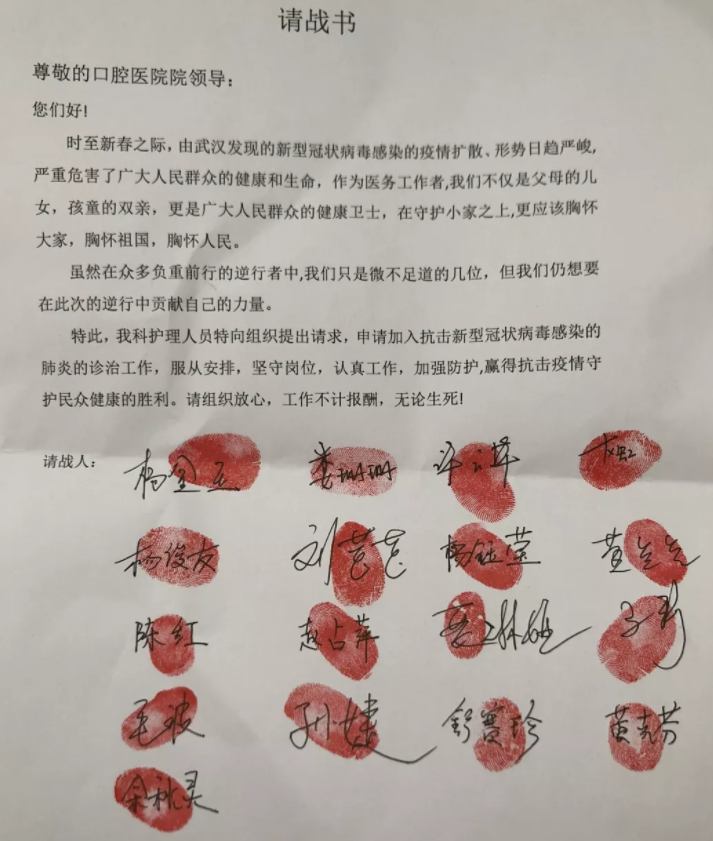 请战书
尊敬的口腔医院院领导：
您们好!
时至新春之际，由武汉发现的新型冠状病毒感染的疫情扩散、形势日趋严峻,
严重危害了广大人民群众的健康和生命，作为医务工作者,我们不仅是父母的儿
女，孩童的双亲，更是广大人民群众的健康卫士，在守护小家之上,更应该胸怀
大家，胸怀祖国，胸怀人民。
虽然在众多负重前行的逆行者中,我们只是微不足道的几位，但我们仍想要
在此次的逆行中贡献自己的力量。
特此，我科护理人员特向组织提出请求，申请加入抗击新型冠状病毒感染的
肺炎的诊治工作，服从安排，坚守岗位，认真工作，加强防护,赢得抗击疫情守
护民众健康的胜利。请组织放心，工作不计报酬，无论生死!
请战人：
杨俊友 刘芑芑 杨钰莹
陈红 赵占萍
毛波 孙婕 舒赛珍 黄克芬
余秋灵